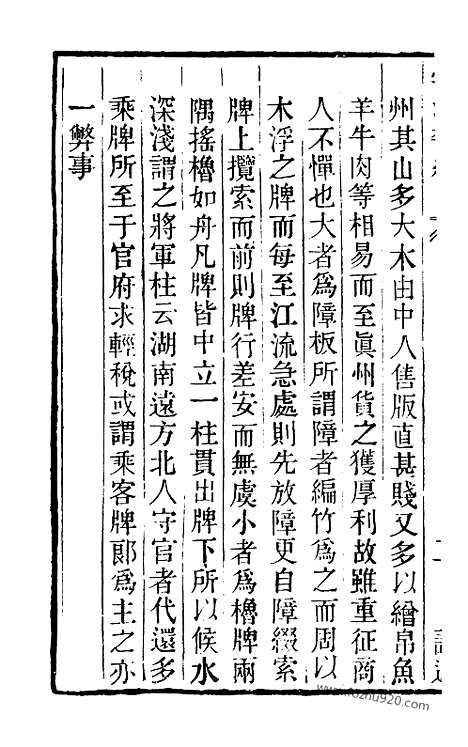 州其山多大木由中人售版直甚賤又多以繒帛魚
羊牛肉等相易而至眞州貨之獲厚利故雖重征商
人不憚也大者爲障板所謂障者編竹爲之而周以
木浮之牌而每至江流急處則先放障更自障綴索
牌上攬索而前則牌行差安而無虞小者爲櫓牌兩
隅搖櫓如舟凡牌皆中立一柱貫出牌下所以候水
深淺謂之將軍柱云湖南遠方北人守官者代還多
乘牌所至于官府求輕稅或謂乘客牌郞爲主之亦
一弊事